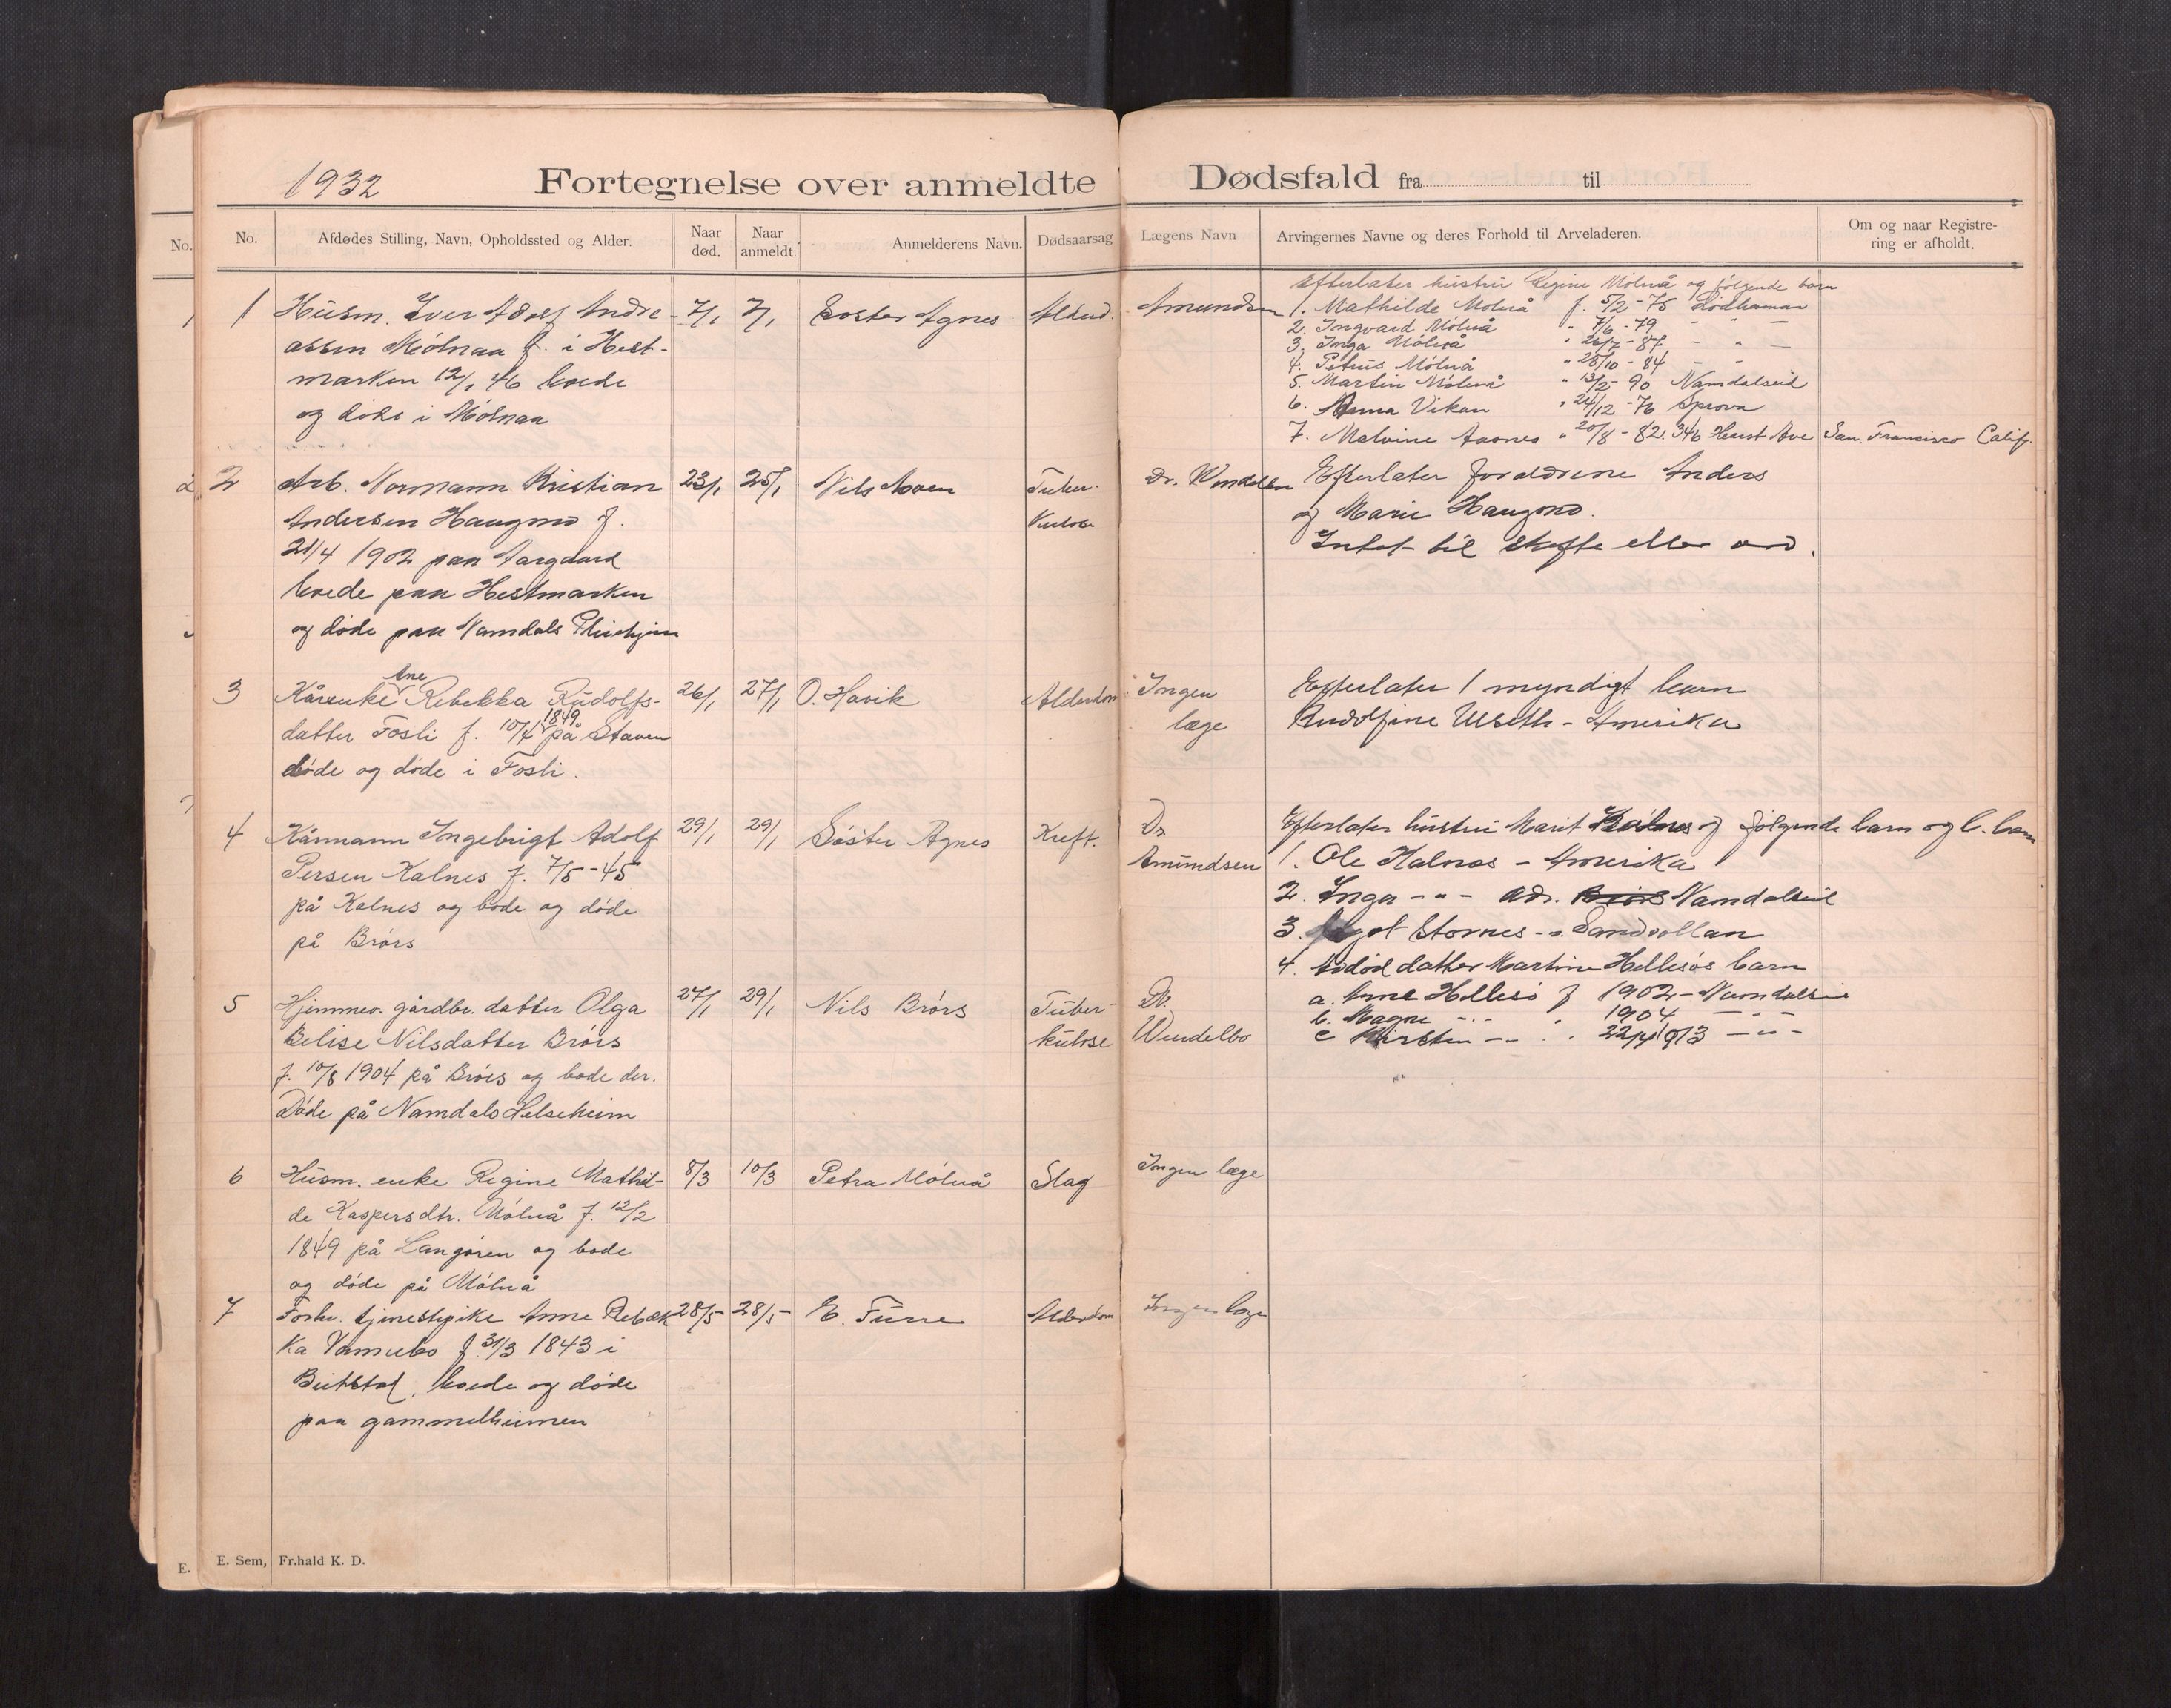 1932
Fortegnelse over anmeldte Dødsfald fra til
No.
No.
Afdødes Stilling, Navn, Opholdssted og Alder.
Naar død.
Naar anmeldt.
Anmelderens Navn.
Dødsaarsag
Lægens Navn
Arvingernes Navne og deres Forhold til Arveladeren.
Om og naar Registre-
ring er afholdt.
1
Husm. Iver Adolf Andre-
assen Mölnaa f. i Hest-
marken 12/1 46 boede
og døde i Mölnaa
7/1
7/1
Søster Agnes
Alderd.
Amundsen
Efterlater hustru Regine Mölnå og følgende barn
1. Mathilde Molnå f. 5/2 - 75 Lødhammar
2. Ingvard Mölnå " 7/6 - 79 - " -
3. Inga Mölnå " 26/7 - 87 - " -
4. Petrus Mölnå " 28/10 - 84 - " -
5. Martin Mölnå " 13/2 - 90 Namdalseid
6. Anna Vikan " 24/12 - 76 Sprova
7. Malvine Aasnes " 20/8 - 82. 346 Hearst Ave San. Francisco Calif.
2
Arb. Normann Kristian
Andersen Haugmo f.
21/4 1902 paa Aargaard
boede paa Hestmarken
og døde paa Namdals Pleiehjem
23/1
25/1
Nils Moen
Tuber-
kulose
Dr. Wendelbo
Efterlater forældrene Anders
og Marie Haugmo.
Intet til skifte eller arv.
3
Kårenke Ane Rebekka Rudolfs-
datter Fosli f. 10/4 1849 på Staven
bode og døde i Fosli.
26/1
27/1
O. Havik
Alderdom
Ingen
læge
Efterlater 1 myndigt barn
Rudolfine Ulseth - Amerika
4
Kårmann Ingebrigt Adolf
Persen Kalnes f. 7/5 - 45
på Kalnes og bode og døde
på Brørs
29/1
29/1
Søster Agnes
Kreft.
Dr
Amundsen
Efterlater hustru Marit Kalnes og følgende barn og b. barn
1. Ole Kalnes - Amerika
2. Inga - " - adr. Brørs Namdalseid
3. Stornes - " Sandvollan
4. Avdød datter Martine Hellesøs barn
a. Arne Hellesø f 1902 - Namdalseid
b. Magne - " - " 1904 - " -
c Kirsten - " - " 22/4 1913 - " -
5
Hjemmev. gårdbr. datter Olga
Belise Nilsdatter Brørs
f. 10/8 1904 på Brørs og bode der.
Døde på Namdals Helseheim
27/1
29/1
Nils Brørs
Tuber-
kulose
Dr.
Wendelbo
6
Husm. enke Regine Mathil-
de Kaspersdtr. Mölnå f. 12/2
1849 på Langøren og bode
og døde på Mölnå
8/3
10/3
Petra Mölnå
Slag
Ingen læge
7
Forhv. tjenestepike Anne Rebek
ka Vannebo f. 31/3 1843 i
Beitstad, boede og døde
paa gammelheimen
28/5
28/5
E. Furre
Alderdom
Ingen læge
E. Sem, Fr.hald K. D.
E.